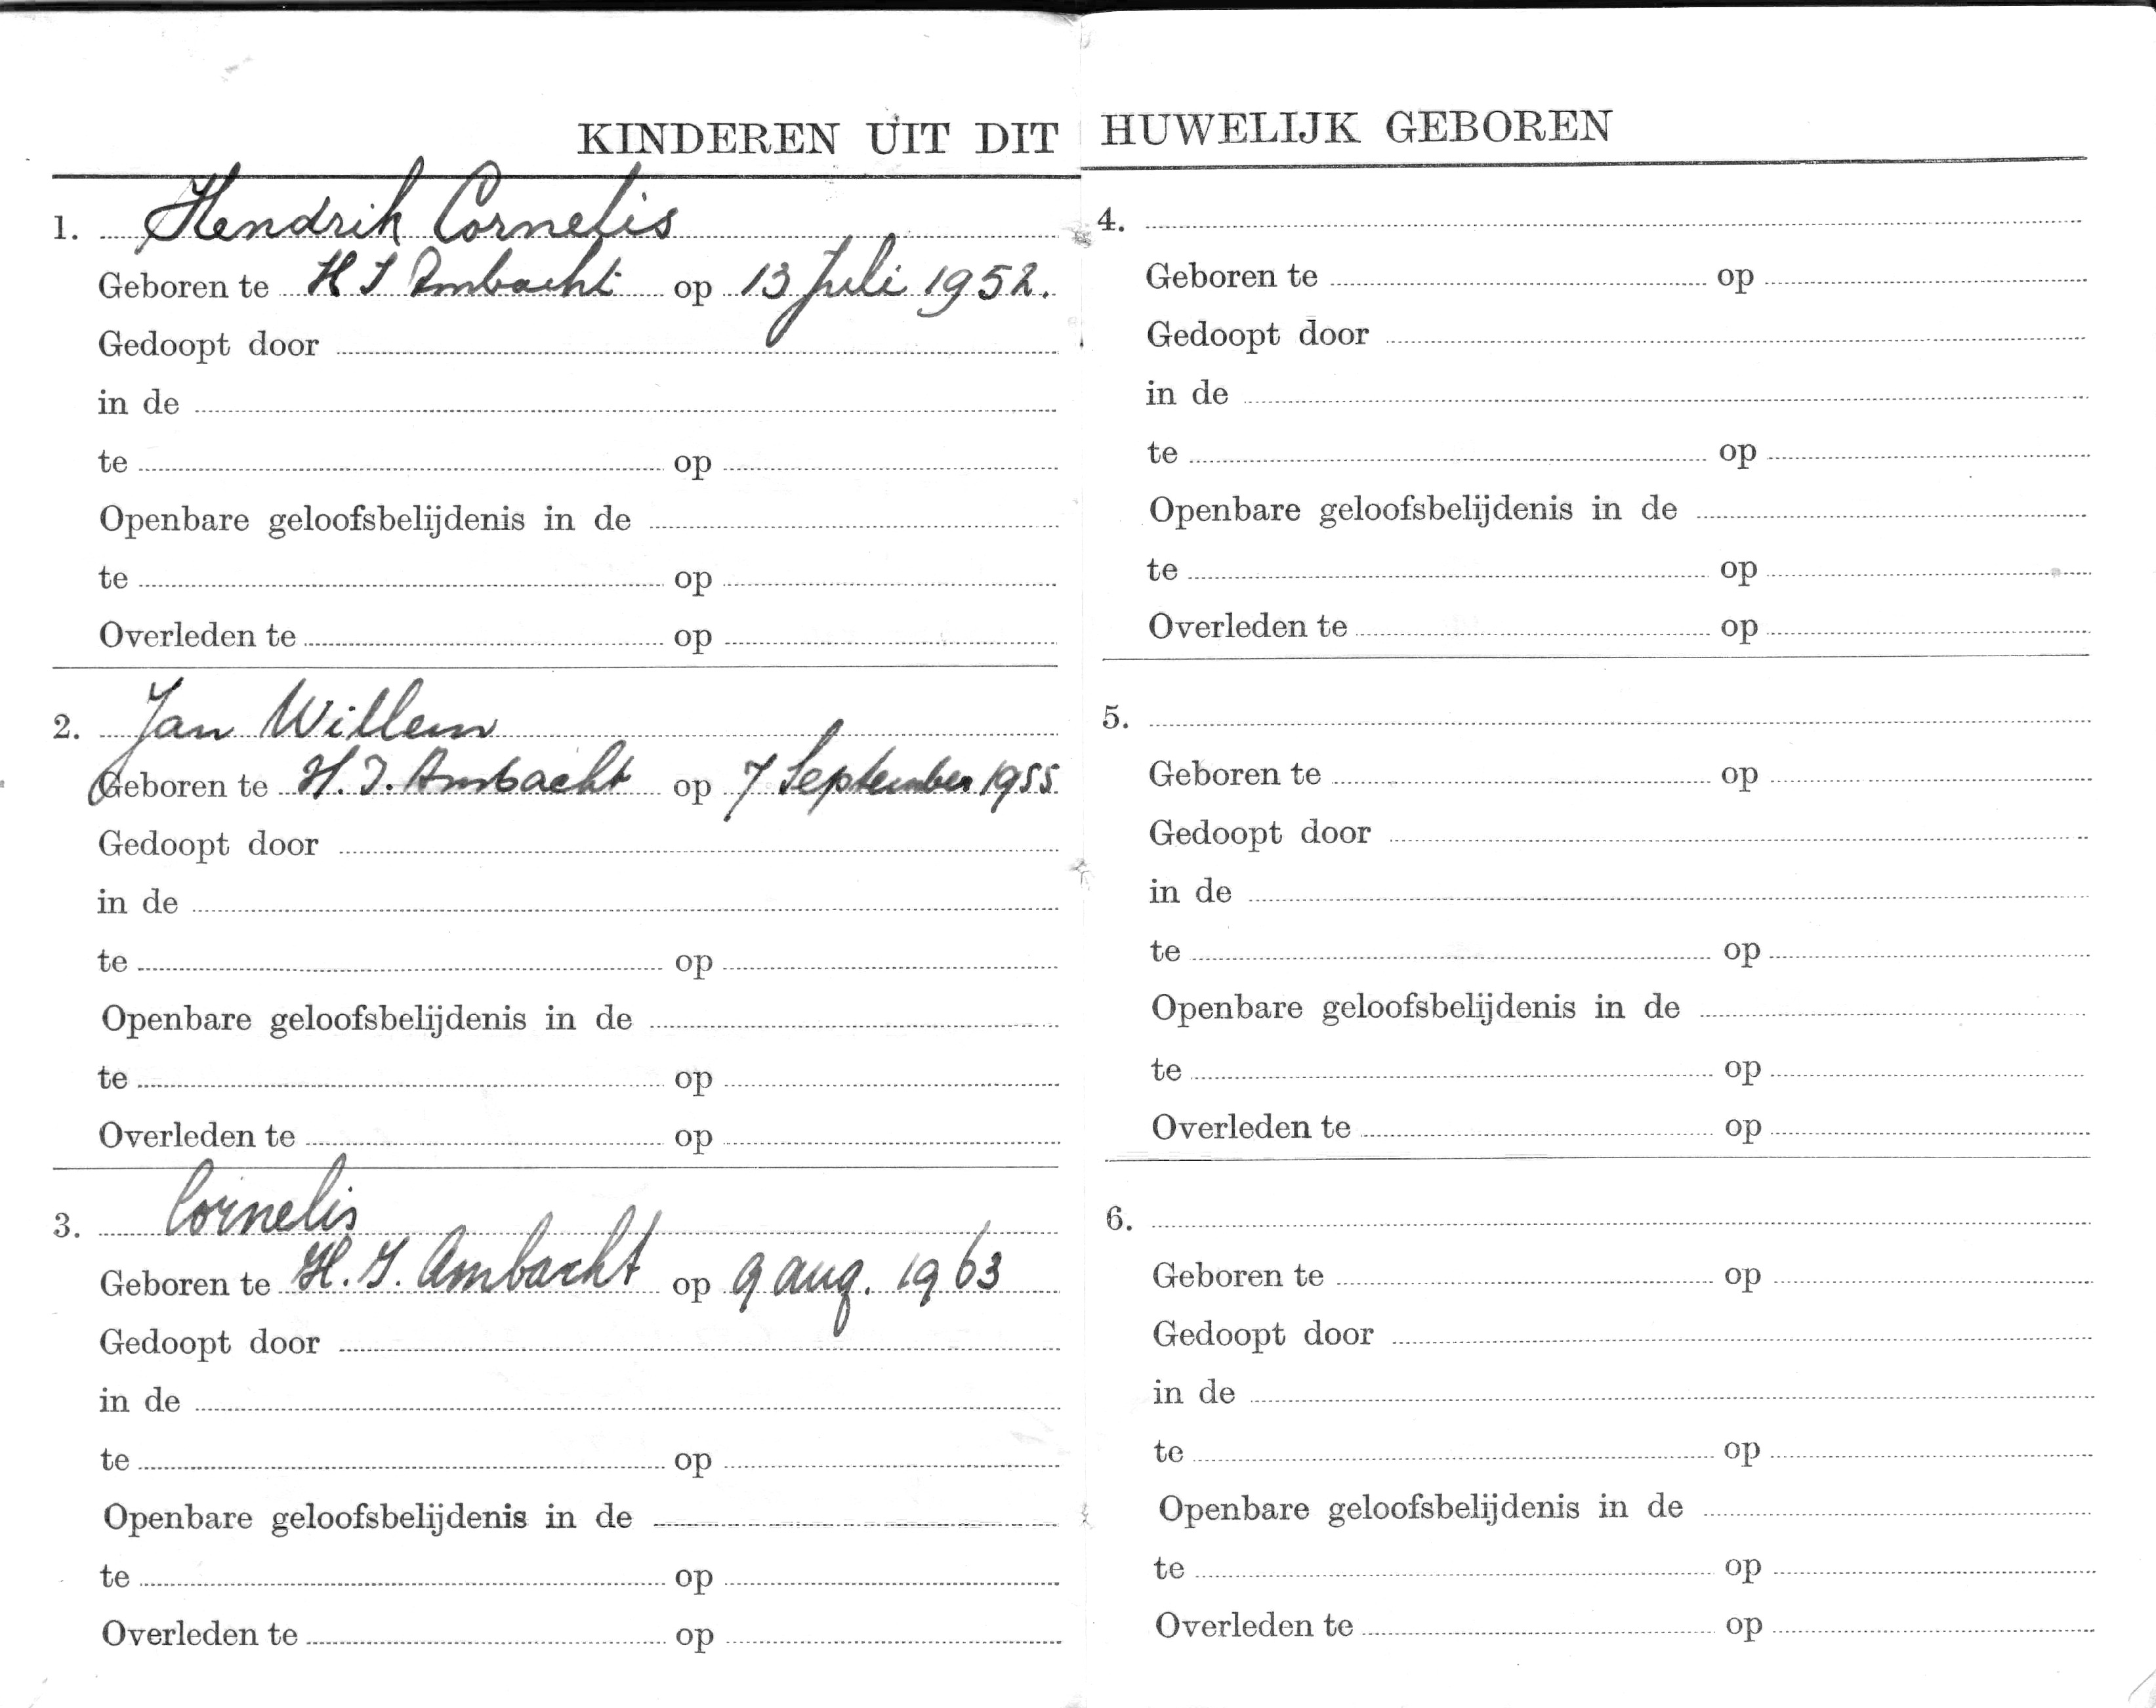 KINDEREN UIT DIT HUWELIJK GEBOREN
1. Hendrik Cornelis
Geboren te H I Ambacht op 13 Juli 1952.
Gedoopt door
in de
te op
Openbare geloofsbelijdenis in de
te op
Overleden te op
2. Jan Willem
Geboren te H. I. Ambacht op 7 September 1955
Gedoopt door
in de
te op
Openbare geloofsbelijdenis in de
te op
Overleden te op
3. Cornelis
Geboren te H. I. Ambacht op 9 aug. 1963
Gedoopt door
in de
te op
Openbare geloofsbelijdenis in de
te op
Overleden te op
4.
Geboren te op
Gedoopt door
in de
te op
Openbare geloofsbelijdenis in de
te op
Overleden te op
5.
Geboren te op
Gedoopt door
in de
te op
Openbare geloofsbelijdenis in de
te op
Overleden te op
6.
Geboren te op
Gedoopt door
in de
te op
Openbare geloofsbelijdenis in de
te op
Overleden te op